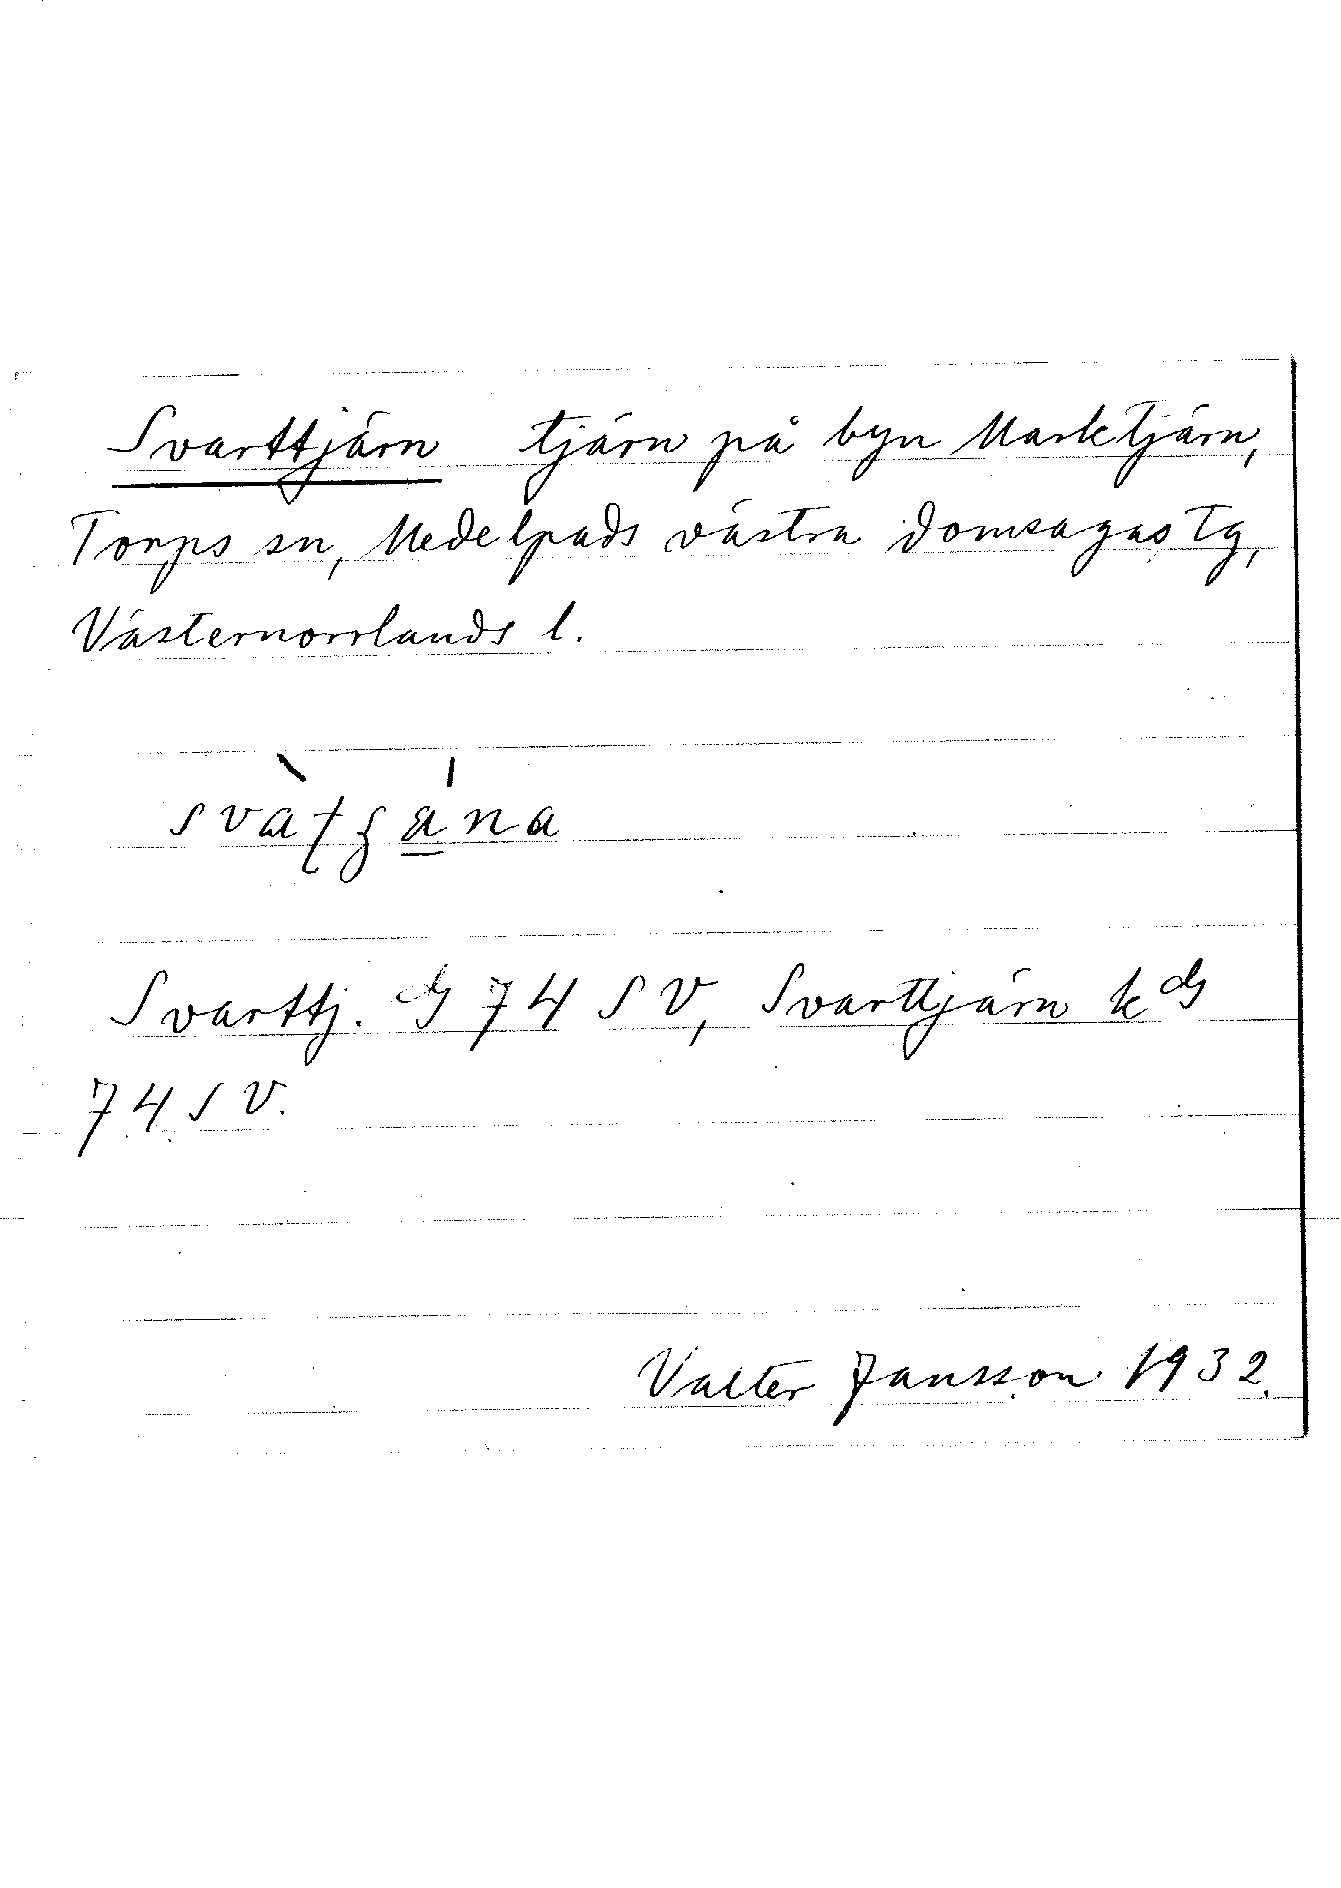 Svarttjärn tjärn på byn Marktjärn,
Torps sn, Medelpads västra domsagas tg,
Västernorrlands l.
Svarttj. 74 SV, Svarttjärn k
74 SV.
Valter Jansson 1932.